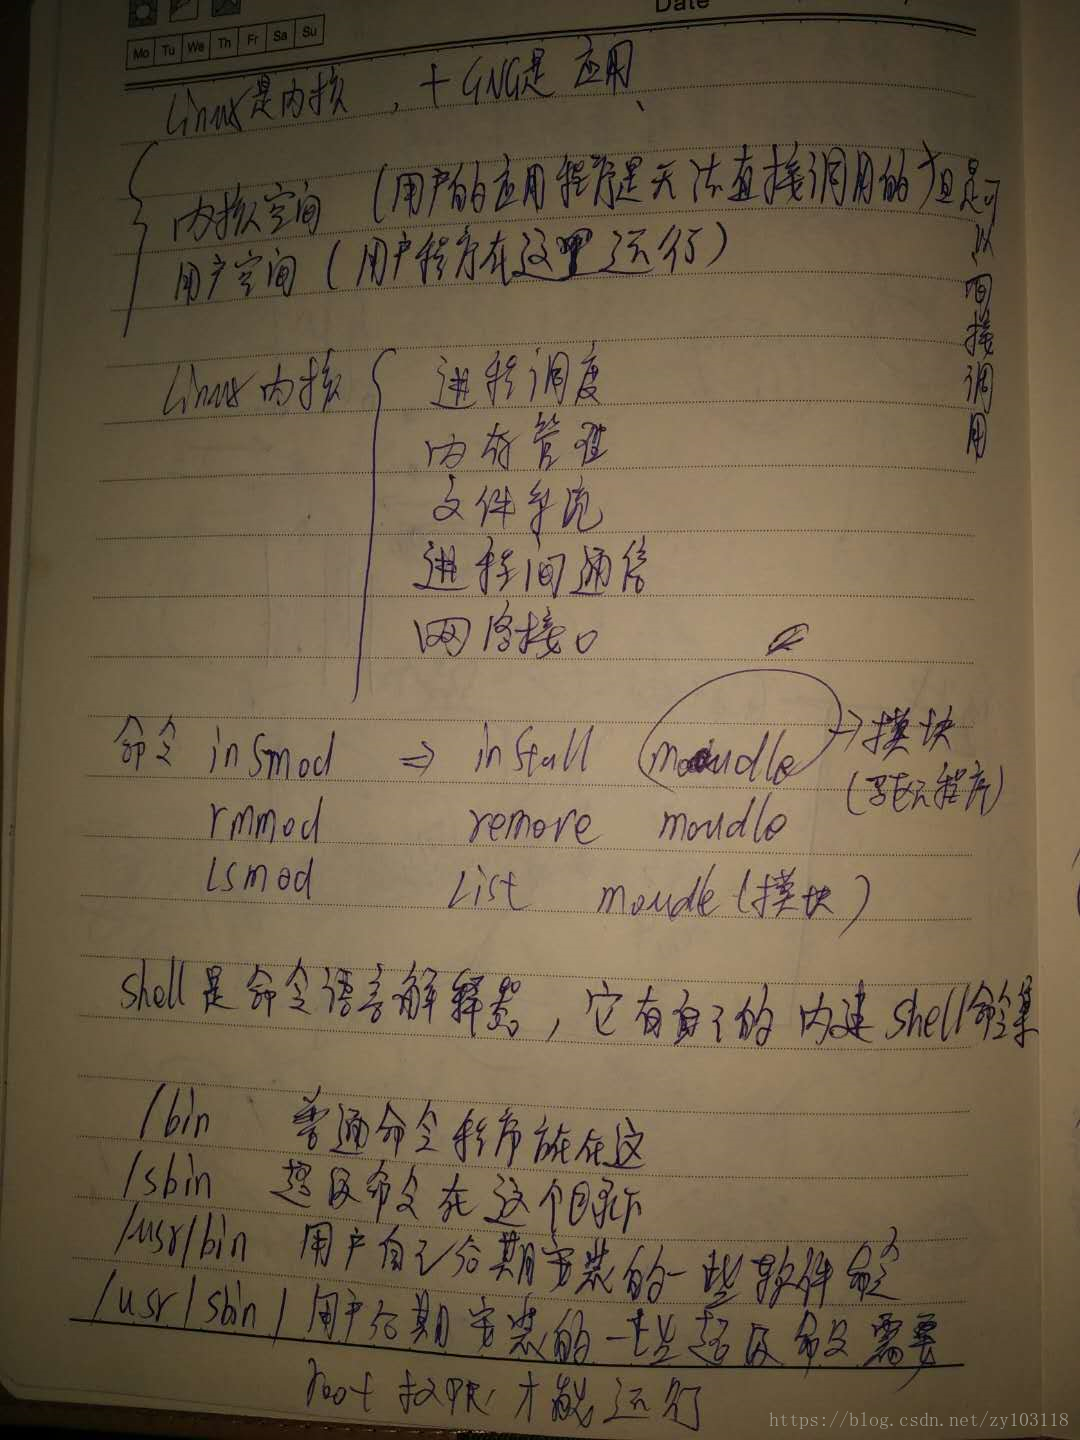 Date
Mo Tu We Th Fr Sa Su
Linux是内核 ，+ GNG是 应用、
内核空间 (用户的应用程序是无法直接调用的 但是可以间接调用
用户空间 (用户程序在这里运行)
Linux内核
进程调度
内存管理
文件系统
进程间通信
网络接口
命令 insmod ⇒ install moudle → 模块
(驱动程序)
rmmod remove moudle
lsmod List moudle (模块)
shell是命令语言解释器，它有自己的 内建 shell命令集
/bin 普通命令程序放在这
/sbin 超级命令在这个目录下
/usr/bin 用户自己后期安装的一些软件 命令
/usr/sbin/ 用户后期安装的一些超级命令需要
root 权限 才能运行
https://blog.csdn.net/zy103118